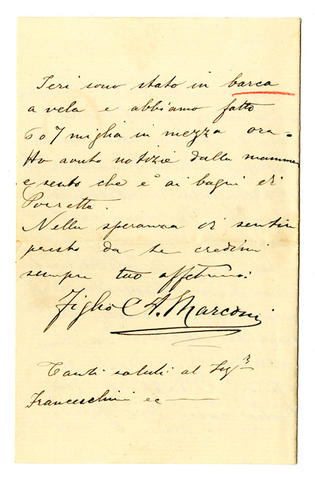 Ieri sono stato in barca
a vela e abbiamo fatto
6 o 7 miglia in mezza ora
Ho avuto notizie dalla mamma
e sento che è ai bagni di
Porretta.
Nella speranza di sentir
presto da te credimi
sempre tuo affetmo:
Figlio A. Marconi
Tanti saluti al Sigr
Franceschini ec